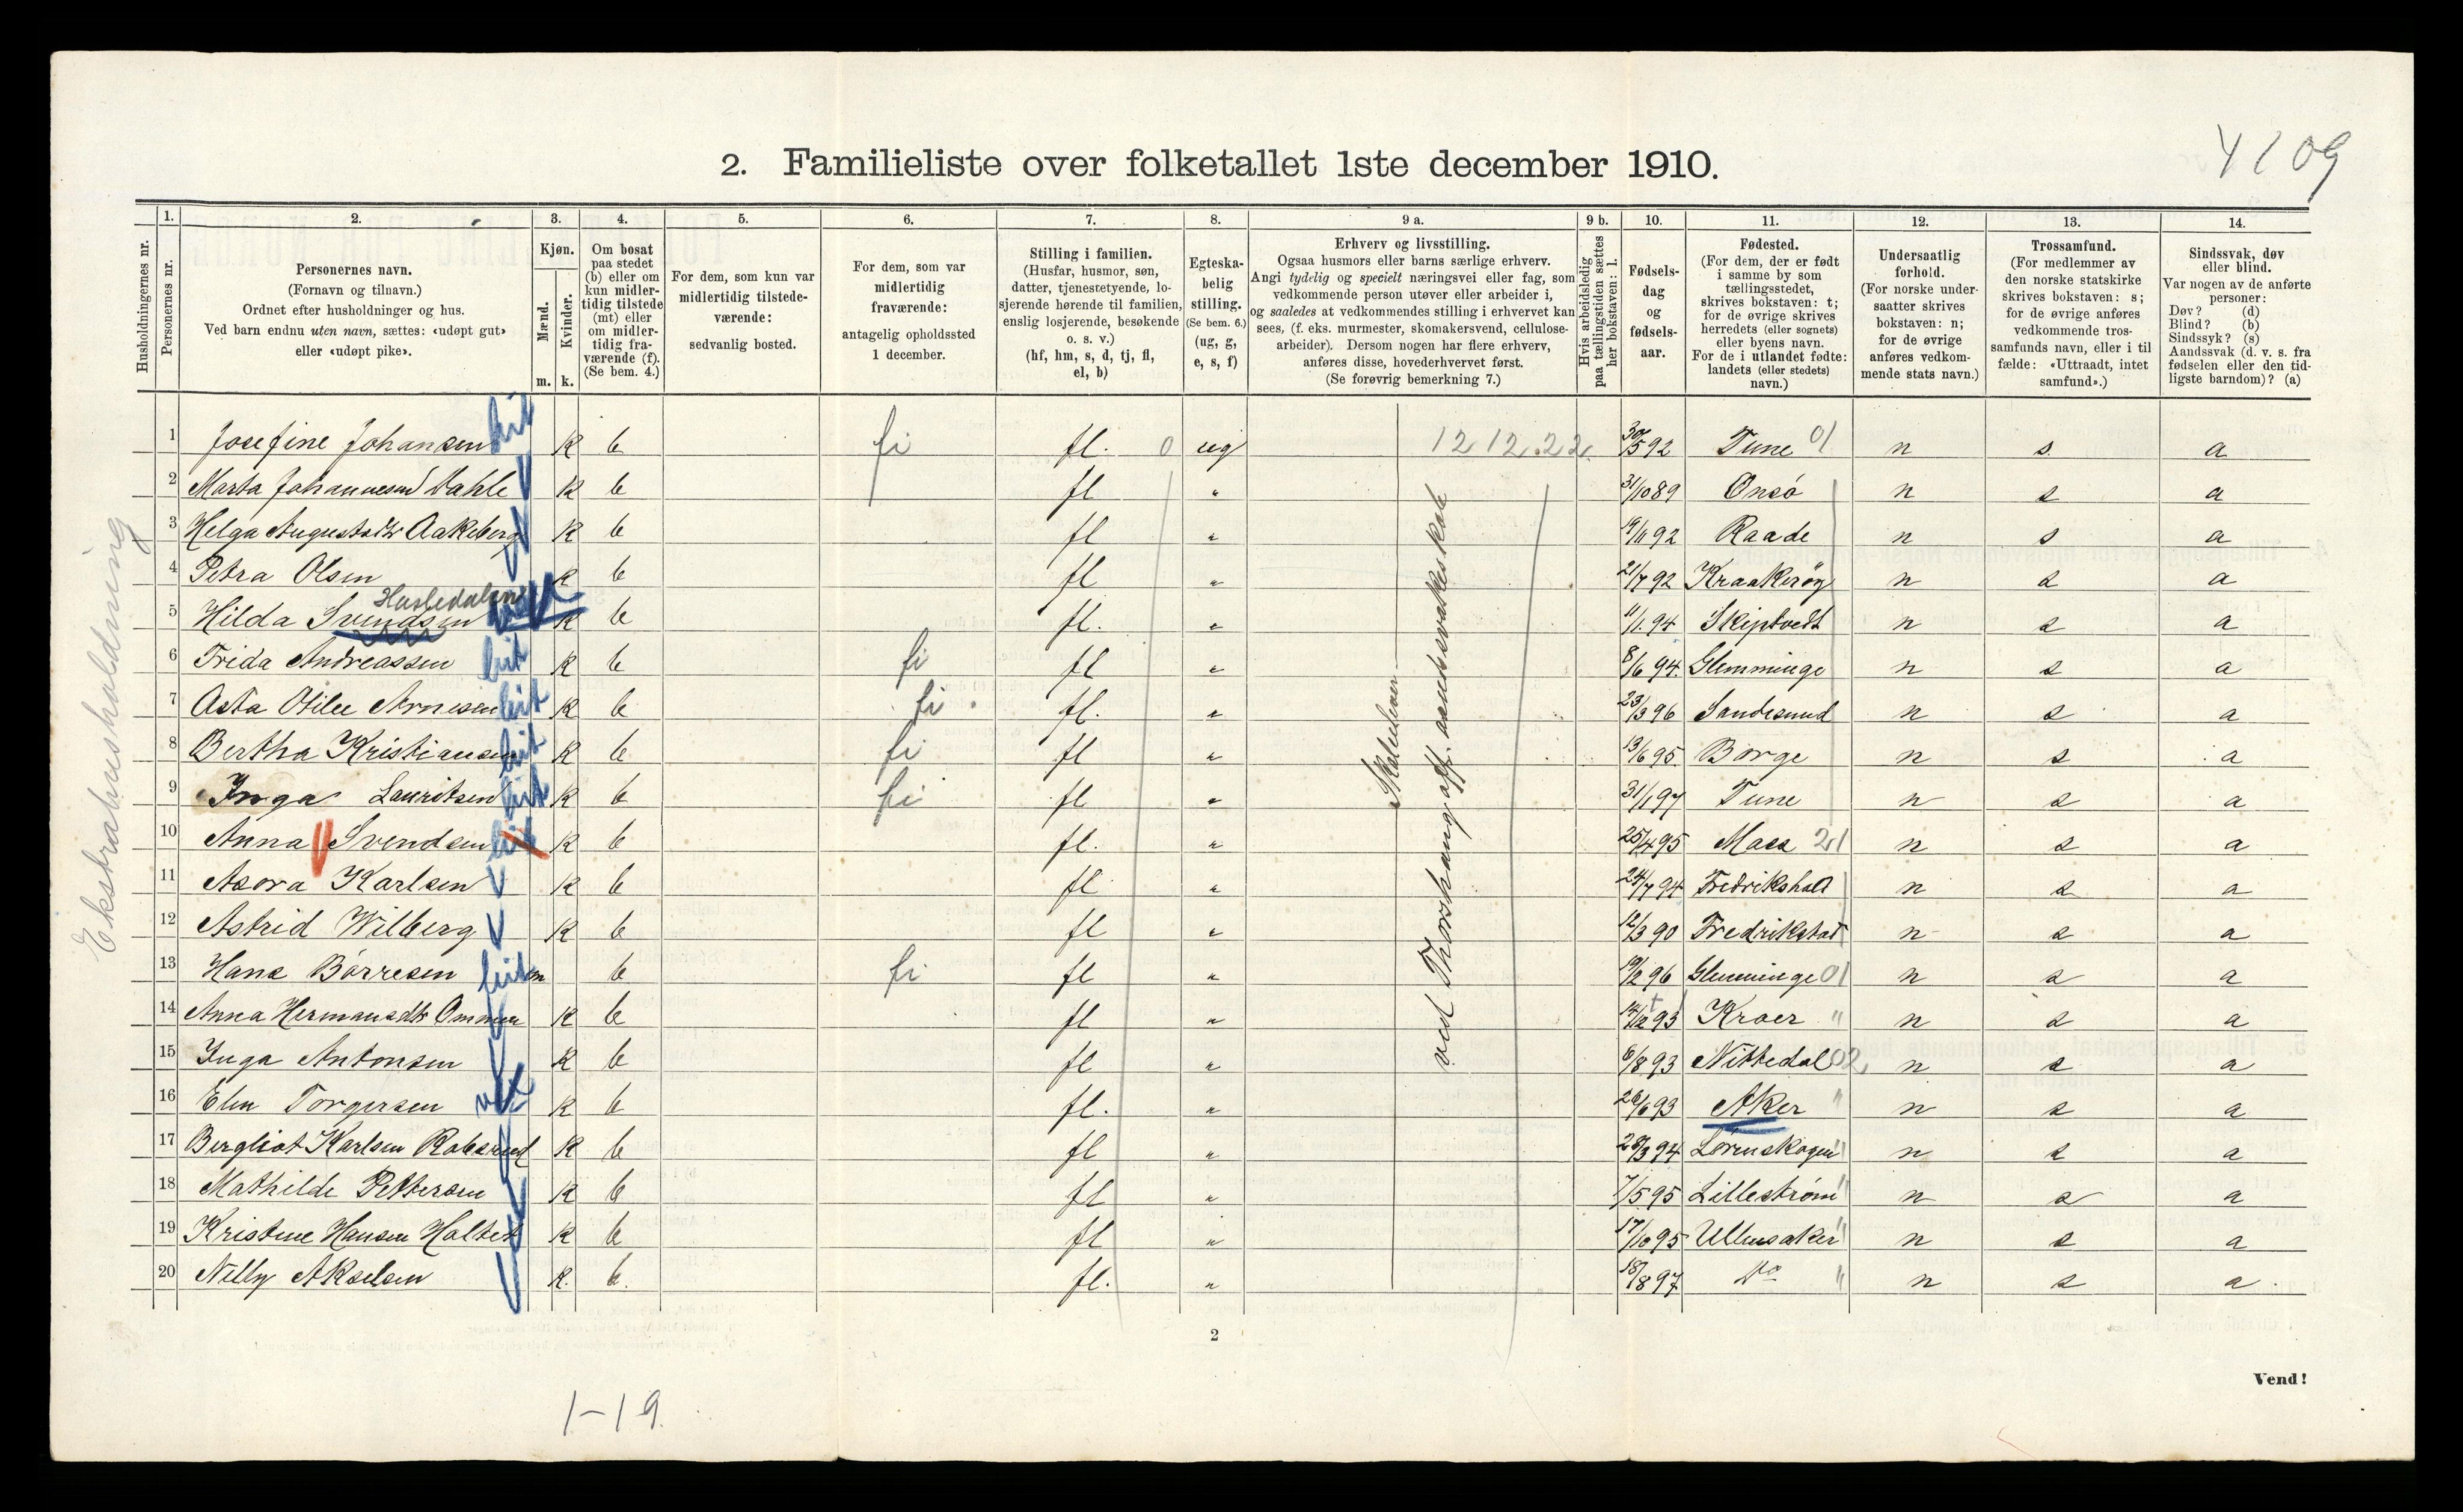 4109
2. Familieliste over folketallet 1ste december 1910.
Husholdningernes nr.
1. Personernes nr.
2. Personernes navn. (Fornavn og tilnavn.) Ordnet efter husholdninger og hus. Ved barn endnu uten navn, sættes: «udøpt gut» eller «udøpt pike».
3. Kjøn. Mænd. m. Kvinder. k.
4. Om bosat paa stedet (b) eller om kun midlertidig tilstede (mt) eller om midlertidig fraværende (f). (Se bem. 4.)
5. For dem, som kun var midlertidig tilstedeværende: sedvanlig bosted.
6. For dem, som var midlertidig fraværende: antagelig opholdssted 1 december.
7. Stilling i familien. (Husfar, husmor, søn, datter, tjenestetyende, losjerende hørende til familien, enslig losjerende, besøkende o. s. v.) (hf, hm, s, d, tj, fl, el, b)
8. Egteskabelig stilling. (Se bem. 6.) (ug, g, e, s, f)
9 a. Erhverv og livsstilling. Ogsaa husmors eller barns særlige erhverv. Angi tydelig og specielt næringsvei eller fag, som vedkommende person utøver eller arbeider i, og saaledes at vedkommendes stilling i erhvervet kan sees, (f. eks. murmester, skomakersvend, cellulosearbeider). Dersom nogen har flere erhverv, anføres disse, hovederhvervet først. (Se forøvrig bemerkning 7.)
9 b. Hvis arbeidsledig paa tællingstiden sættes her bokstaven: l.
10. Fødselsdag og fødselsaar.
11. Fødested. (For dem, der er født i samme by som tællingsstedet, skrives bokstaven: t; for de øvrige skrives herredets (eller sognets) eller byens navn. For de i utlandet fødte: landets (eller stedets) navn.)
12. Undersaatlig forhold. (For norske undersaatter skrives bokstaven: n; for de øvrige anføres vedkommende stats navn.)
13. Trossamfund. (For medlemmer av den norske statskirke skrives bokstaven: s; for de øvrige anføres vedkommende trossamfunds navn, eller i tilfælde: «Uttraadt, intet samfund».)
14. Sindssvak, døv eller blind. Var nogen av de anførte personer: Døv? (d) Blind? (b) Sindssyk? (s) Aandssvak (d. v. s. fra fødselen eller den tidligste barndom)? (a)
Ekstrahusholdning
1 Josefine Johansen K b fi fl. 0 ug 12 12.22. 30/5 92 Tune 01 n s. a
2 Marta Johannesen Dahle K b fl " 31/10 89 Onsø n s a
3 Helga Augustsdtr Aakeberg K b fl " 19/11 92 Raade n s a
4 Petra Olsen K b fl " 21/7 92 Kraakerøy n s a
Hasledalen
5 Hilda Svendsen K b fl. " 11/1. 94 Skiptvedt n s a
6 Frida Andreassen K b fi fl " 8/6 94. Glemminge n s a
7 Asta Otilie Arnesen K b fi. fl. " 23/3 96 Sandesund n s a
8 Bertha Kristiansen K b fi fl " 13/6 95. Borge n s a
9 Inga Lauritsen K b fi fl " 31/1 97 Tune n s a
10 Anna Svendsen K b fl. " 25/4 95 Moss 21 n s a
11 Asora Karlsen K b fl " 24/7 94 Fredrikshald n s a
12 Astrid Wilberg K b fl " 12/3 90 Fredrikstad n s a
13 Hans Børresen m b fi fl " 19/2 96 Glemminge 01 n s a
14 Anna Hermansdtr Ommen K b fl " 14/12 93 Kroer " n s a
15 Inga Antonsen K b fl " 6/8 93 Nittedal 02 n s a
16 Elen Torgersen K b fl. " 26/6 93 Aker " n s a
17 Bergliot Karlsen Robsrud K b fl " 28/3 94 Lørenskogen " n s a
18 Mathilde Pettersen K b fl " 7/5 95 Lillestrøm " n s a
19 Kristine Hansen Holtet K b fl " 17/10 95 Ullensaker " n s a
20 Nilly Akselsen K. b. fl. " 18/8 97 Do " n s a.
Skoleelever
ved Thorshaug off. aandssvakeskole
2
Vend!
1-19.